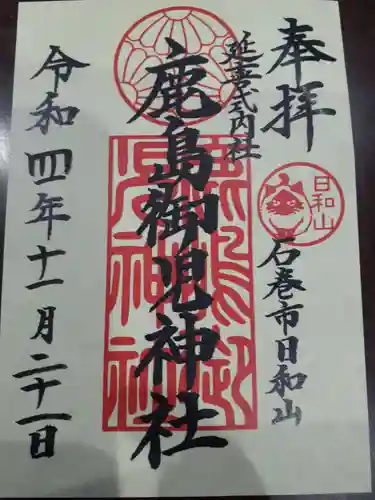 奉拝
日和山
石巻市日和山
延喜式内社
鹿島御児神社
鹿嶋御児神社
令和四年十一月二十一日